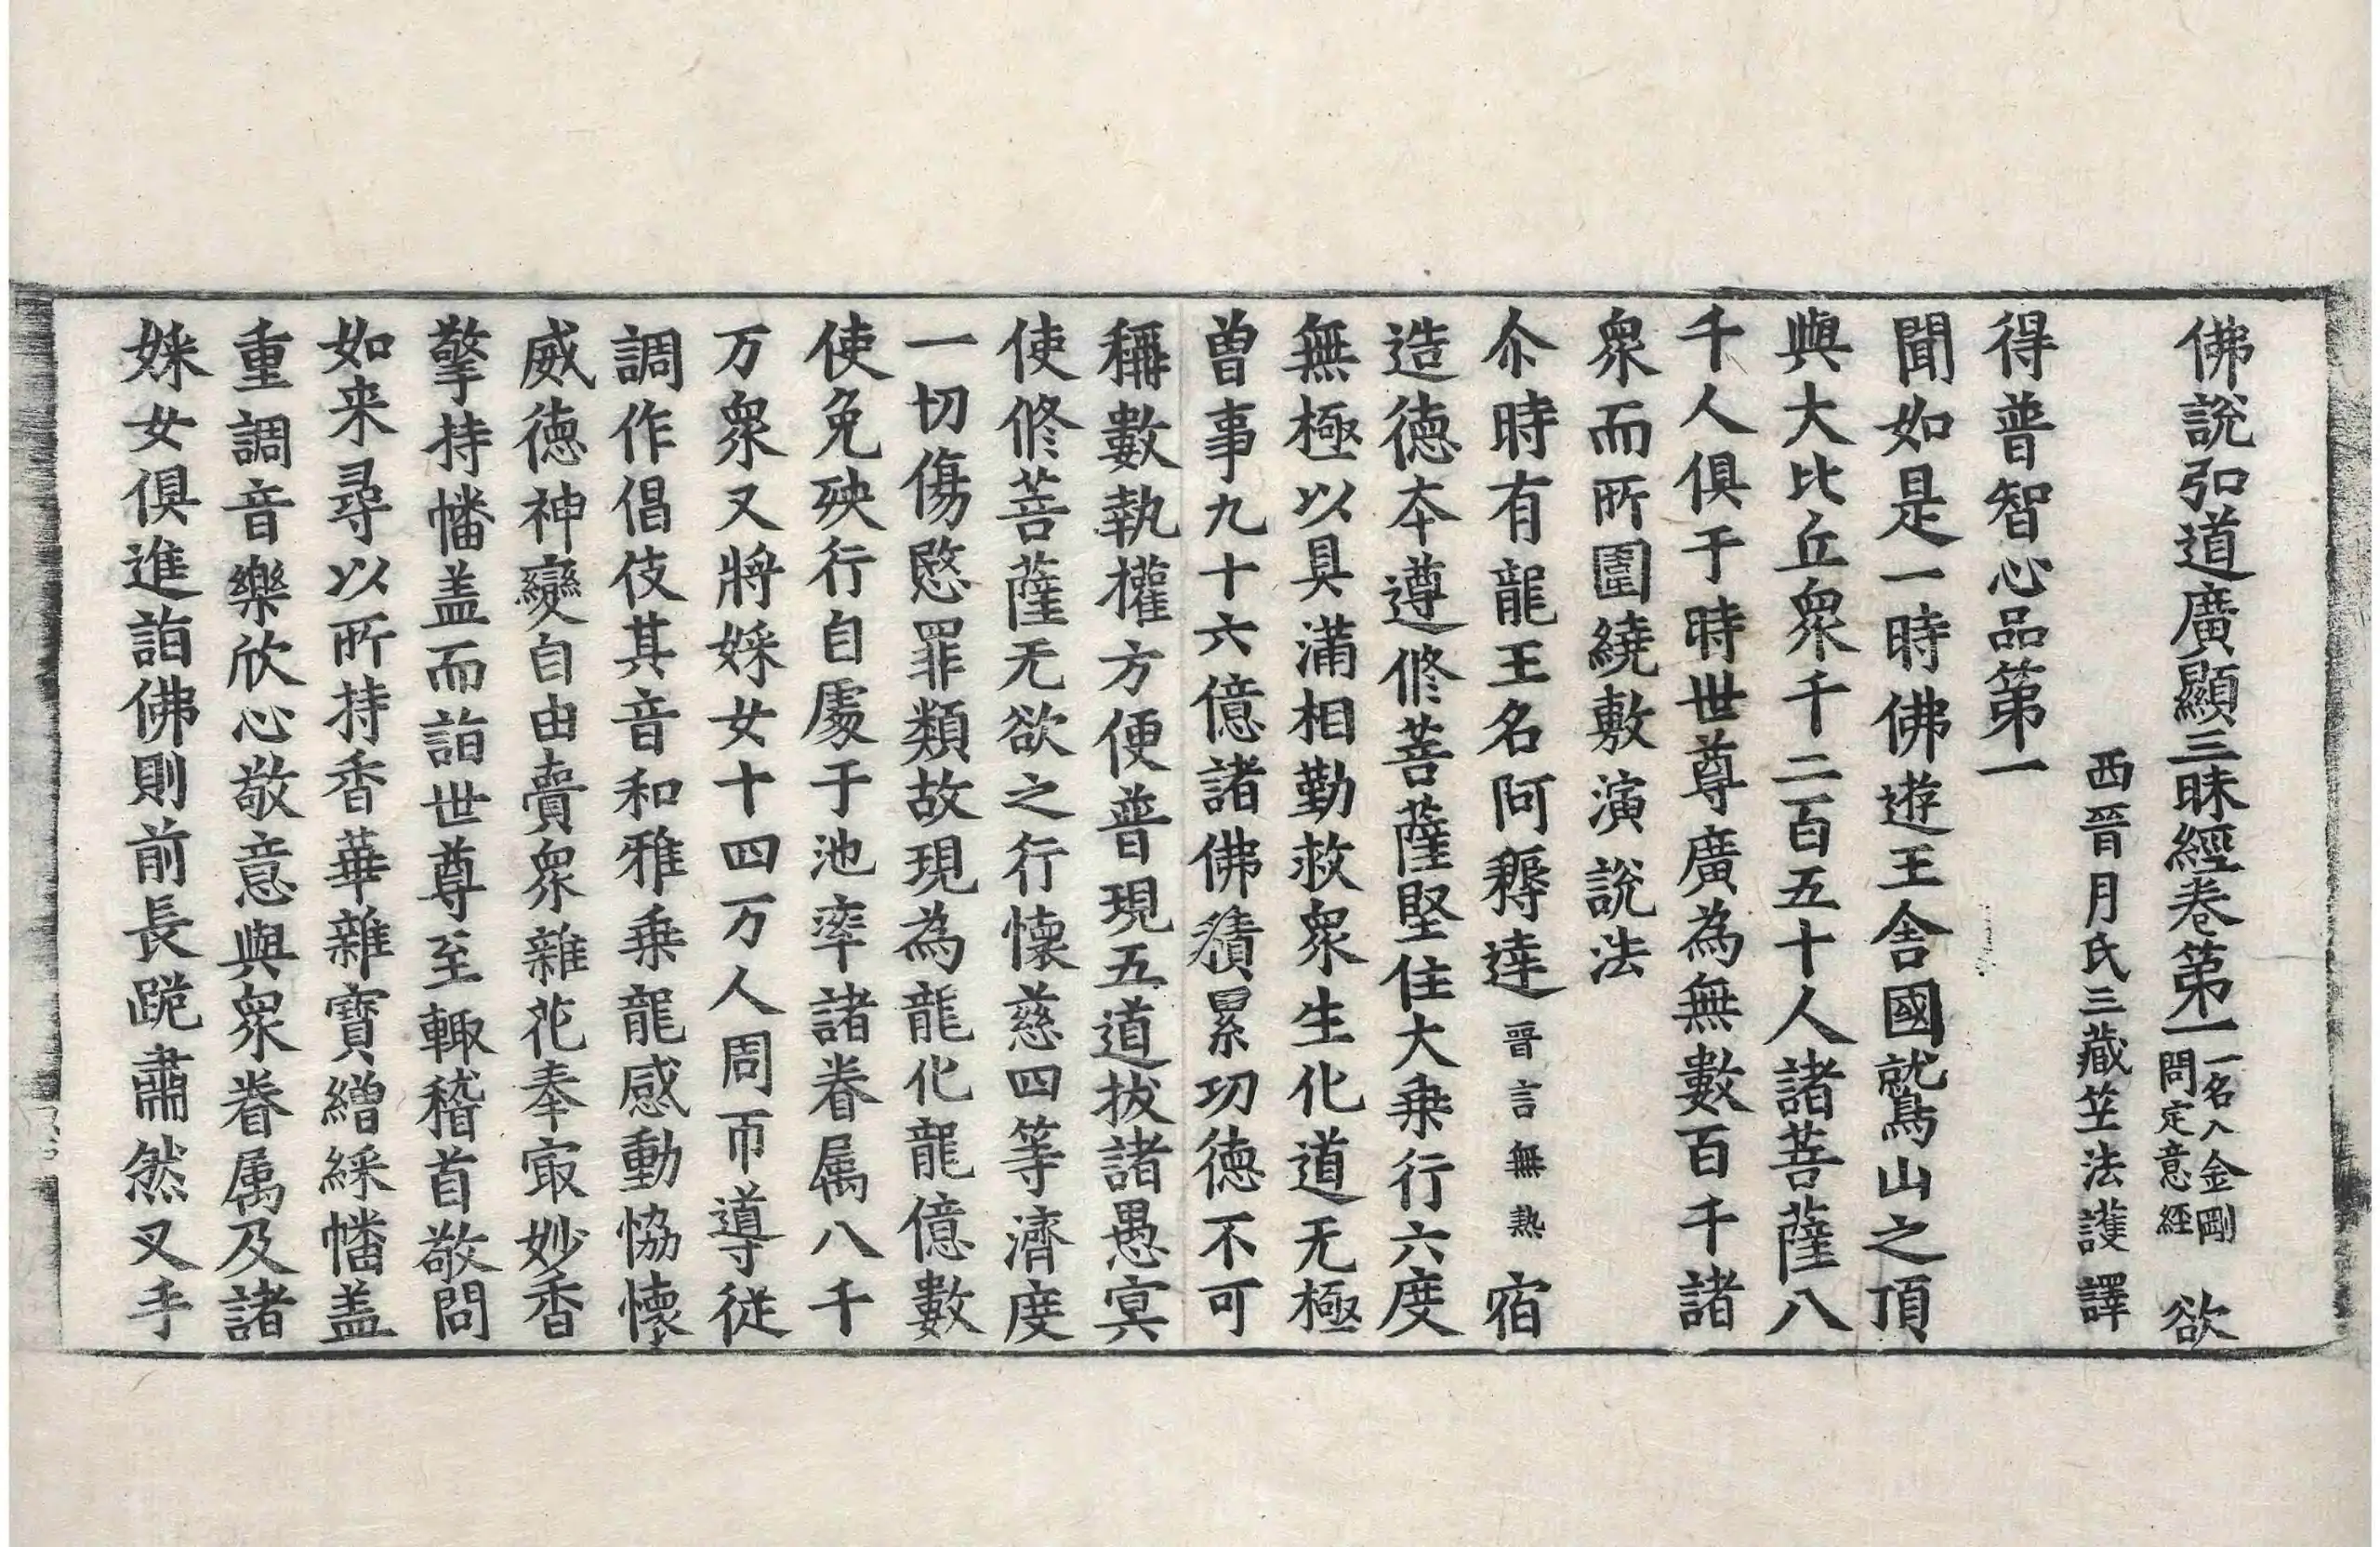 佛說弘道廣顯三昧經卷第一一名入金剛問定意經 欲
西晉月氏三藏笁法護譯
得普智心品第一
聞如是一時佛遊王舍國鷲山之頂
與大比丘衆千二百五十人諸菩薩八
千人俱于時世尊廣為無數百千諸
衆而所圍繞敷演說法
尒時有龍王名阿耨達晉言無熱宿
造德夲遵修菩薩堅住大乗行六度
無極以具滿相勤救衆生化道无極
曾事九十六億諸佛積累功德不可
稱數執權方便普現五道拔諸愚冥
使修菩薩无欲之行懷慈四等濟度
一切傷愍罪類故現為龍化龍億數
使免殃行自處于池率諸眷属八千
万衆又將婇女十四万人周帀導從
調作倡伎其音和雅乗龍感動恊懷
威德神變自由賷衆雜花奉㝡妙香
擎持幡盖而詣世尊至輙稽首敬問
如来尋以所持香華雜寶繒綵幡盖
重調音樂欣心敬意與衆眷属及諸
婇女俱進詣佛則前長跪肅然叉手